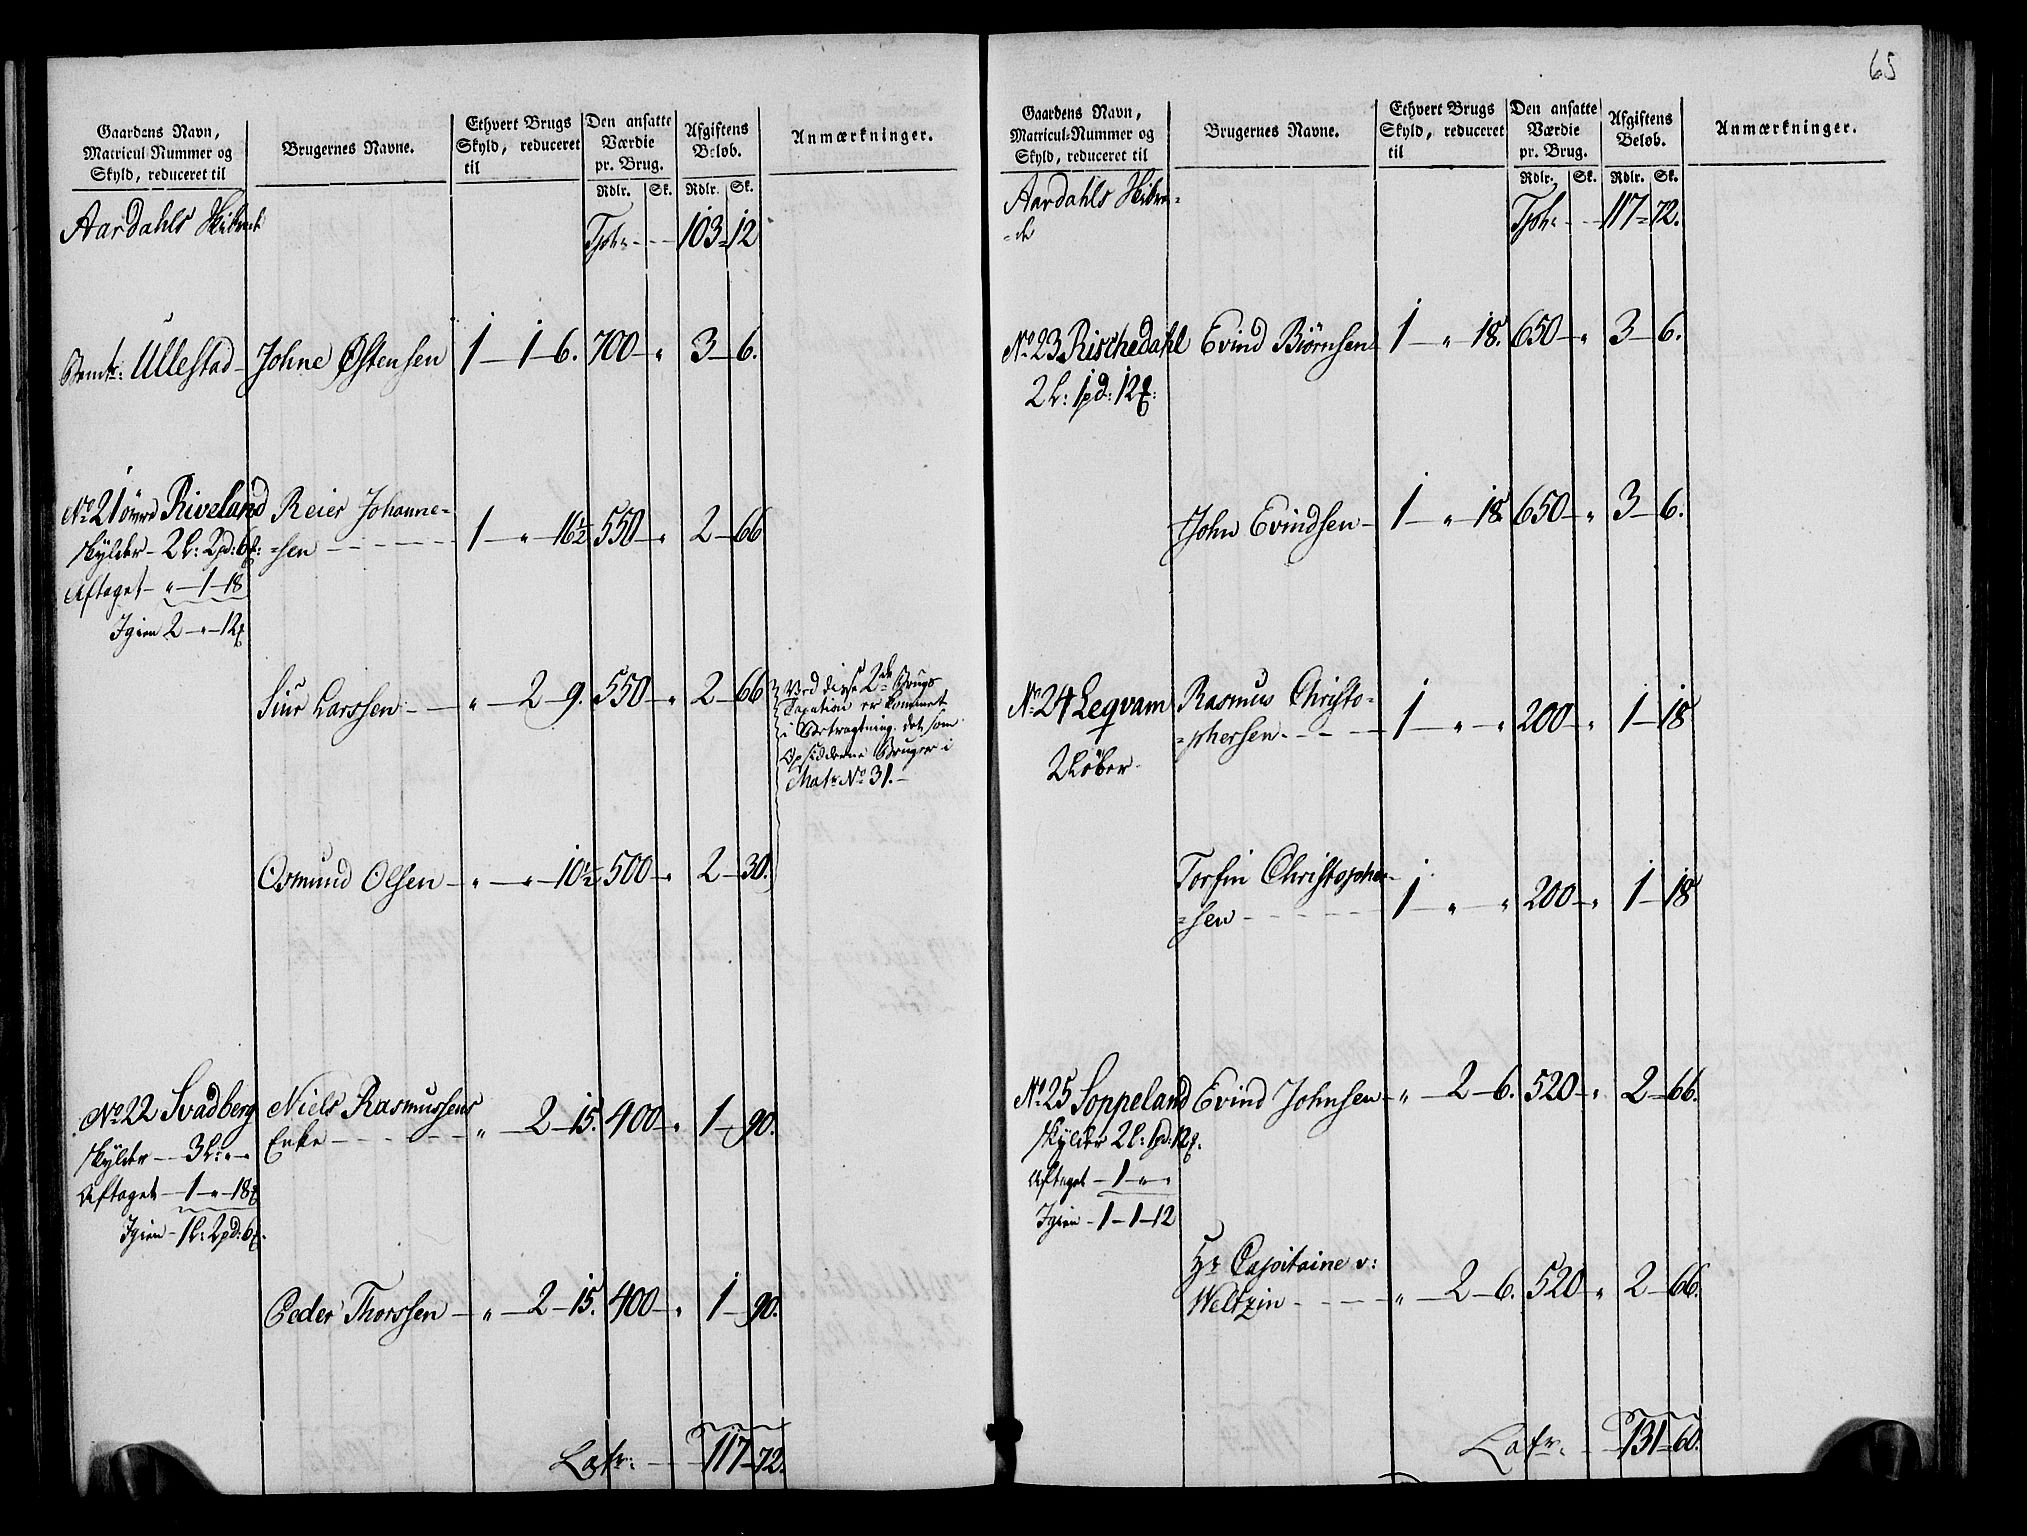 65
Gaardens Navn,
Matricul-Nummer og
Skyld, reduceret til
Brugernes Navne.
Ethvert Brugs
Skyld, reduceret
til
Den ansatte
Værdie
pr. Brug.
Rdlr. Sk.
Afgiftens
Beløb.
Rdlr. Sk.
Anmærkninger.
Aardahls
Tph: 103 - 12
Ullestad - Johne Østensen 1 - 1 - 6. 700 - " 3 - 6.
No 21 övre Riveland Reier Johanne=
=sen 1 - " - 16½ 550 - " 2 - 66
skÿlder - 2 L: 2 pd: 6 ℔:
Aftaget - " - 1 - 18
Igien 2 - " - 12 ℔
Siur Larssen - " - 2 - 9. 550 - " 2 - 66
Ved disse 2de Brugs
Taxation er kommet
i Betragtning det som
Opsidderne Bruger i
Matr No 31. -
Osmund Olsen - " - " - 10½ 500 - " 2 - 30.
No 22 Svadberg Niels Rasmussens
Enke " - 2 - 15. 400 - " 1 - 90.
skÿlder - 3 L: " - "
Aftaget - 1 - " - 18 ℔
Igien - 1 L: 2 pd: 6 ℔.
Peder Thorssen - " - 2 - 15. 400 - " 1 - 90.
Latr: 117 - 72.
Gaardens Navn,
Matricul-Nummer og
Skyld, reduceret til
Brugernes Navne.
Ethvert Brugs
Skyld, reduceret
til
Den ansatte
Værdie
pr. Brug.
Rdlr. Sk.
Afgiftens
Beløb.
Rdlr. Sk.
Anmærkninger.
Aardahls
Tph: 117 - 72.
No 23 Rischedahl Evind Biørnsen 1 - " - 18. 650 - " 3 - 6.
2 L: 1 pd: 12 ℔:
John Evindsen - 1 - " - 18. 650 - " 3 - 6.
No 24 Leqvam Rasmus Christo=
=phersen 1 - " - " 200 - " 1 - 18
2 Löber
Torfin Christopher=
=sen 1 - " - " 200 - " 1 - 18
No 25 Soppeland Evind Johnsen - " - 2 - 6. 520 - " 2 - 66.
skÿlder 2 L: 1 pd: 12 ℔.
Aftaget - 1 - " - "
Igien - 1 - 1 - 12
Hr Capitaine v:
Weltzin " - 2 - 6. 520 - " 2 - 66.
Latr. 131 - 60.